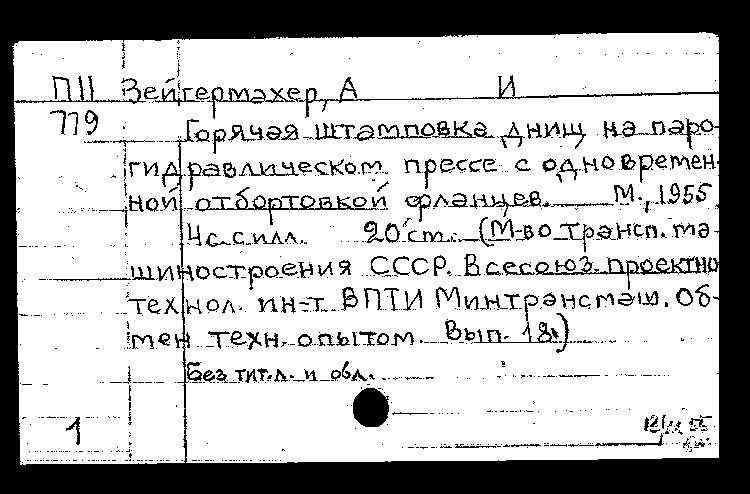 П11 Зейгермахер, А И
779 Горячая штамповка днищ на паро-
гидравлическом прессе с одновремен-
ной отбортовкой фланцев. М., 1955
4 с. с илл. 20 см. (М-во трансп. ма-
шиностроения СССР. Всесоюз. проектно
технол. ин-т ВПТИ Минтрансмаш. Об-
мен техн. опытом. Вып. 18.)
Без тит. л. и обл.
1